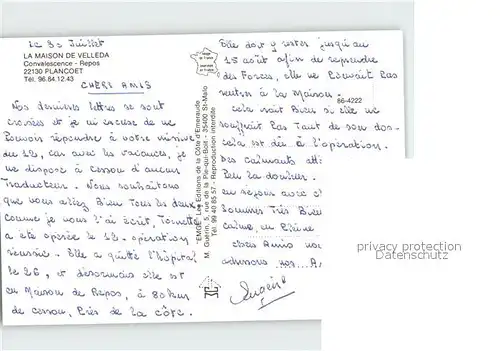 Le 30 Juillet
LA MAISON DE VELLEDA
Convalescence - Repos
22130 PLANCOET
Tél. 96.84.12.43
CHERS AMIS
Nos dernières lettres se sont
croisées et je m'excuse de ne
Pouvoir répondre à votre missive
du 12, car avec les vacances, je
ne dispose à cesson d'aucun
Traducteur. Nous souhaitons
que vous alliez Bien Tous les deux,
Comme je vous l'ai écrit, Toinette
a été opérée le 12. opération
réussie. Elle a quitté l'hôpital
le 26, et désormais elle est
en Maison de Repos, à 80 km
de cesson, Près de la côte.
EMGE - Les Editions de la Côte d'Emeraude
M. Guérin, 5, rue de la Pie-qui-Boit - 35400 St-Malo
Tél. 99 40 85 57 - Reproduction interdite
Elle doit y rester jusqu'au
15 août afin de reprendre
des Forces, elle ne Pouvait Pas
rentrer à la Maison.
86-4222
Cela irait Bien si elle ne
souffrait Pas Tant de son dos-
cela est dû à l'opération.
Des calmants
Peu la douleur.
en séjour avec
sommes Très Bien
calme, en
chers Amis
adressons nos
privacy protection
Datenschutz
Eugène